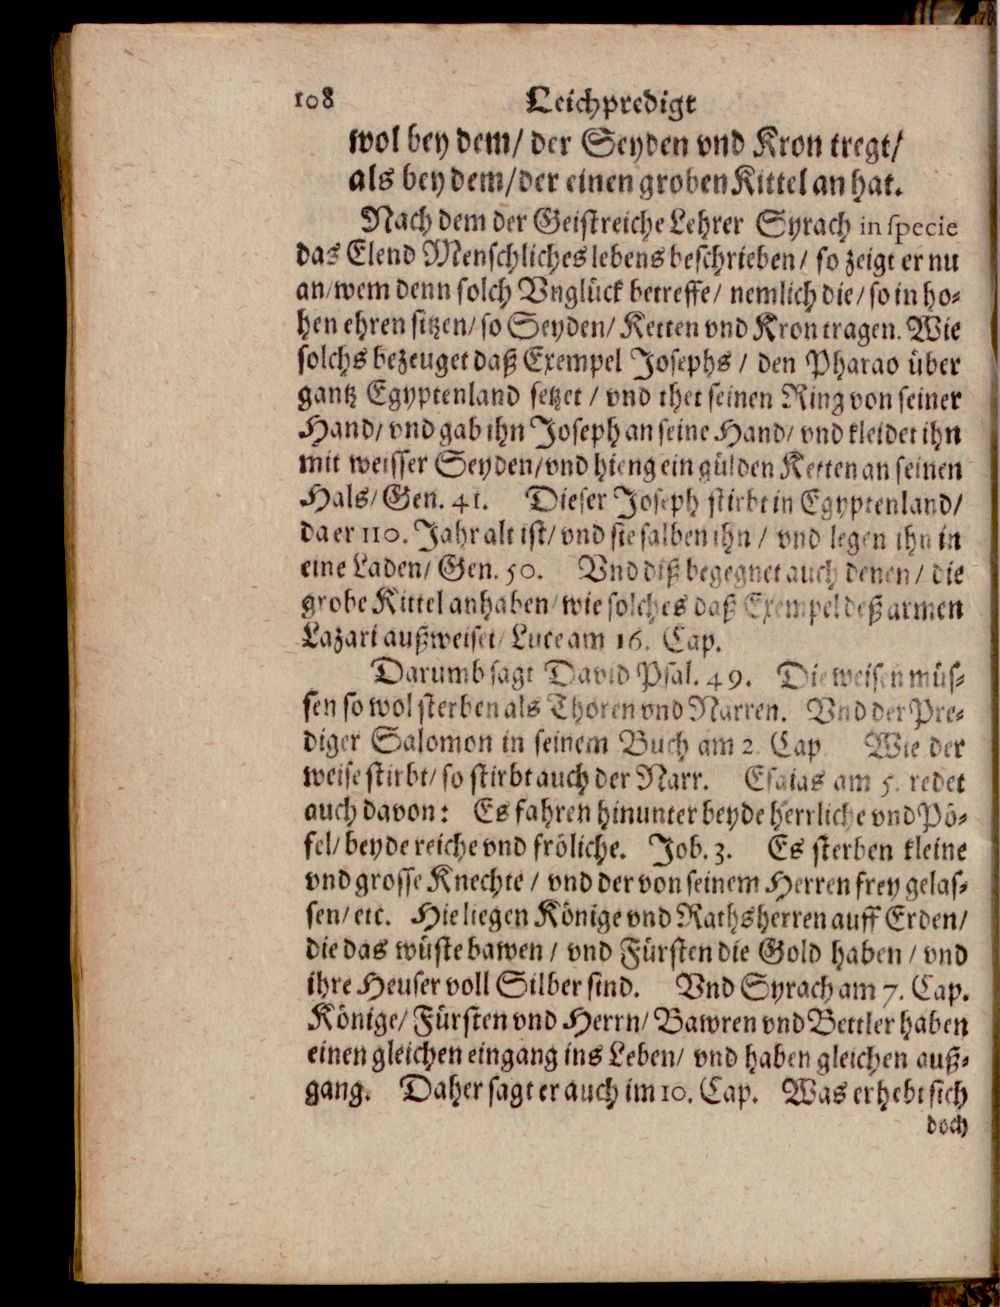 108 Leichpredigt
wol bey dem/ der Seyden vnd Kron tregt/
als bey dem/ der einen groben Kittel an hat.
Nach dem der Geistreiche Lehrer Syrach in specie
das Elend Menschliches lebens beschrieben/ so zeigt er nu
an/ wem denn solch Vnglück betreffe/ nemlich die/ so in ho⸗
hen ehren sitzen/ so Seyden/ Ketten vnd Kron tragen. Wie
solchs bezeuget daß Exempel Josephs/ den Pharao über
gantz Egyptenland setzet/ vnd thet seinen Ring von seiner
Hand/ vnd gab ihn Joseph an seine Hand/ vnd kleidet ihn
mit weisser Seyden/ vnd hieng ein gülden Ketten an seinen
Hals/ Gen. 41. Dieser Joseph stirbt in Egyptenland/
da er 110. Jahr alt ist/ vnd sie salben ihn/ vnd legen ihn in
eine Laden/ Gen. 50. Vnd diß begegnet auch denen/ die
grobe Kittel anhaben/ wie solches daß Exempel deß armen
Lazari außweiset/ Luce am 16. Cap.
Darumb sagt David Psal. 49. Die weisen müs⸗
sen so wol sterben als Thoren vnd Narren. Vnd der Pre⸗
diger Salomon in seinem Buch am 2. Cap. Wie der
weise stirbt/ so stirbt auch der Narr. Esaias am 5. redet
auch davon: Es fahren hinunter beyde herrliche vnd Pö⸗
fel/ beyde reiche vnd fröliche. Job. 3. Es sterben kleine
vnd grosse Knechte/ vnd der von seinem Herren frey gelas⸗
sen/ etc. Hie liegen Könige vnd Rathsherren auff Erden/
die das wüste bawen/ vnd Fürsten die Gold haben/ vnd
ihre Heuser voll Silber sind. Vnd Syrach am 7. Cap.
Könige/ Fürsten vnd Herrn/ Bawren vnd Bettler haben
einen gleichen eingang ins Leben/ vnd haben gleichen auß⸗
gang. Daher sagt er auch im 10. Cap. Was erhebt sich
doch